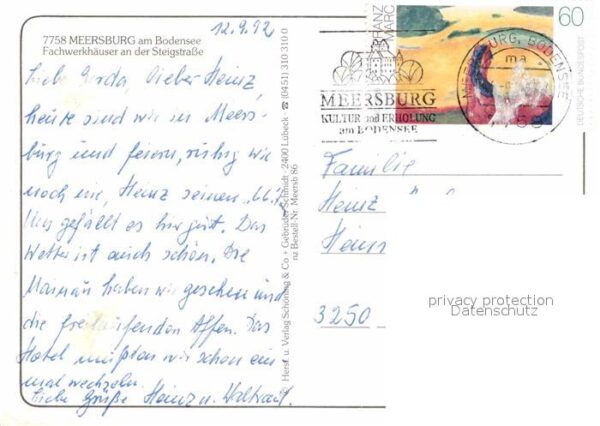 12.9.92
7758 MEERSBURG am Bodensee
Fachwerkhäuser an der Steigstraße
Liebe Gerda, lieber Heinz,
heute sind wir in Meers-
burg und feiern, ruhig wie
noch nie, Heinz seinen 66.
Uns gefällt es hier gut. Das
Wetter ist auch schön. Die
Mainau haben wir gesehen und
die freilaufenden Affen. Das
Hotel mußten wir schon ein
mal wechseln.
Liebe Grüße Heinz u. Waltraud
© Herst. u. Verlag Schöning & Co + Gebrüder Schmidt · 2400 Lübeck · ☎ (0451) 310 310 0
nz Bestell-Nr. Meersb 86
FRANZ
MARC
60
DEUTSCHE BUNDESPOST
MEERSBURG
KULTUR und ERHOLUNG
am BODENSEE
MEERSBURG, BODENSEE
ma
Familie
Heinz
3250
privacy protection
Datenschutz